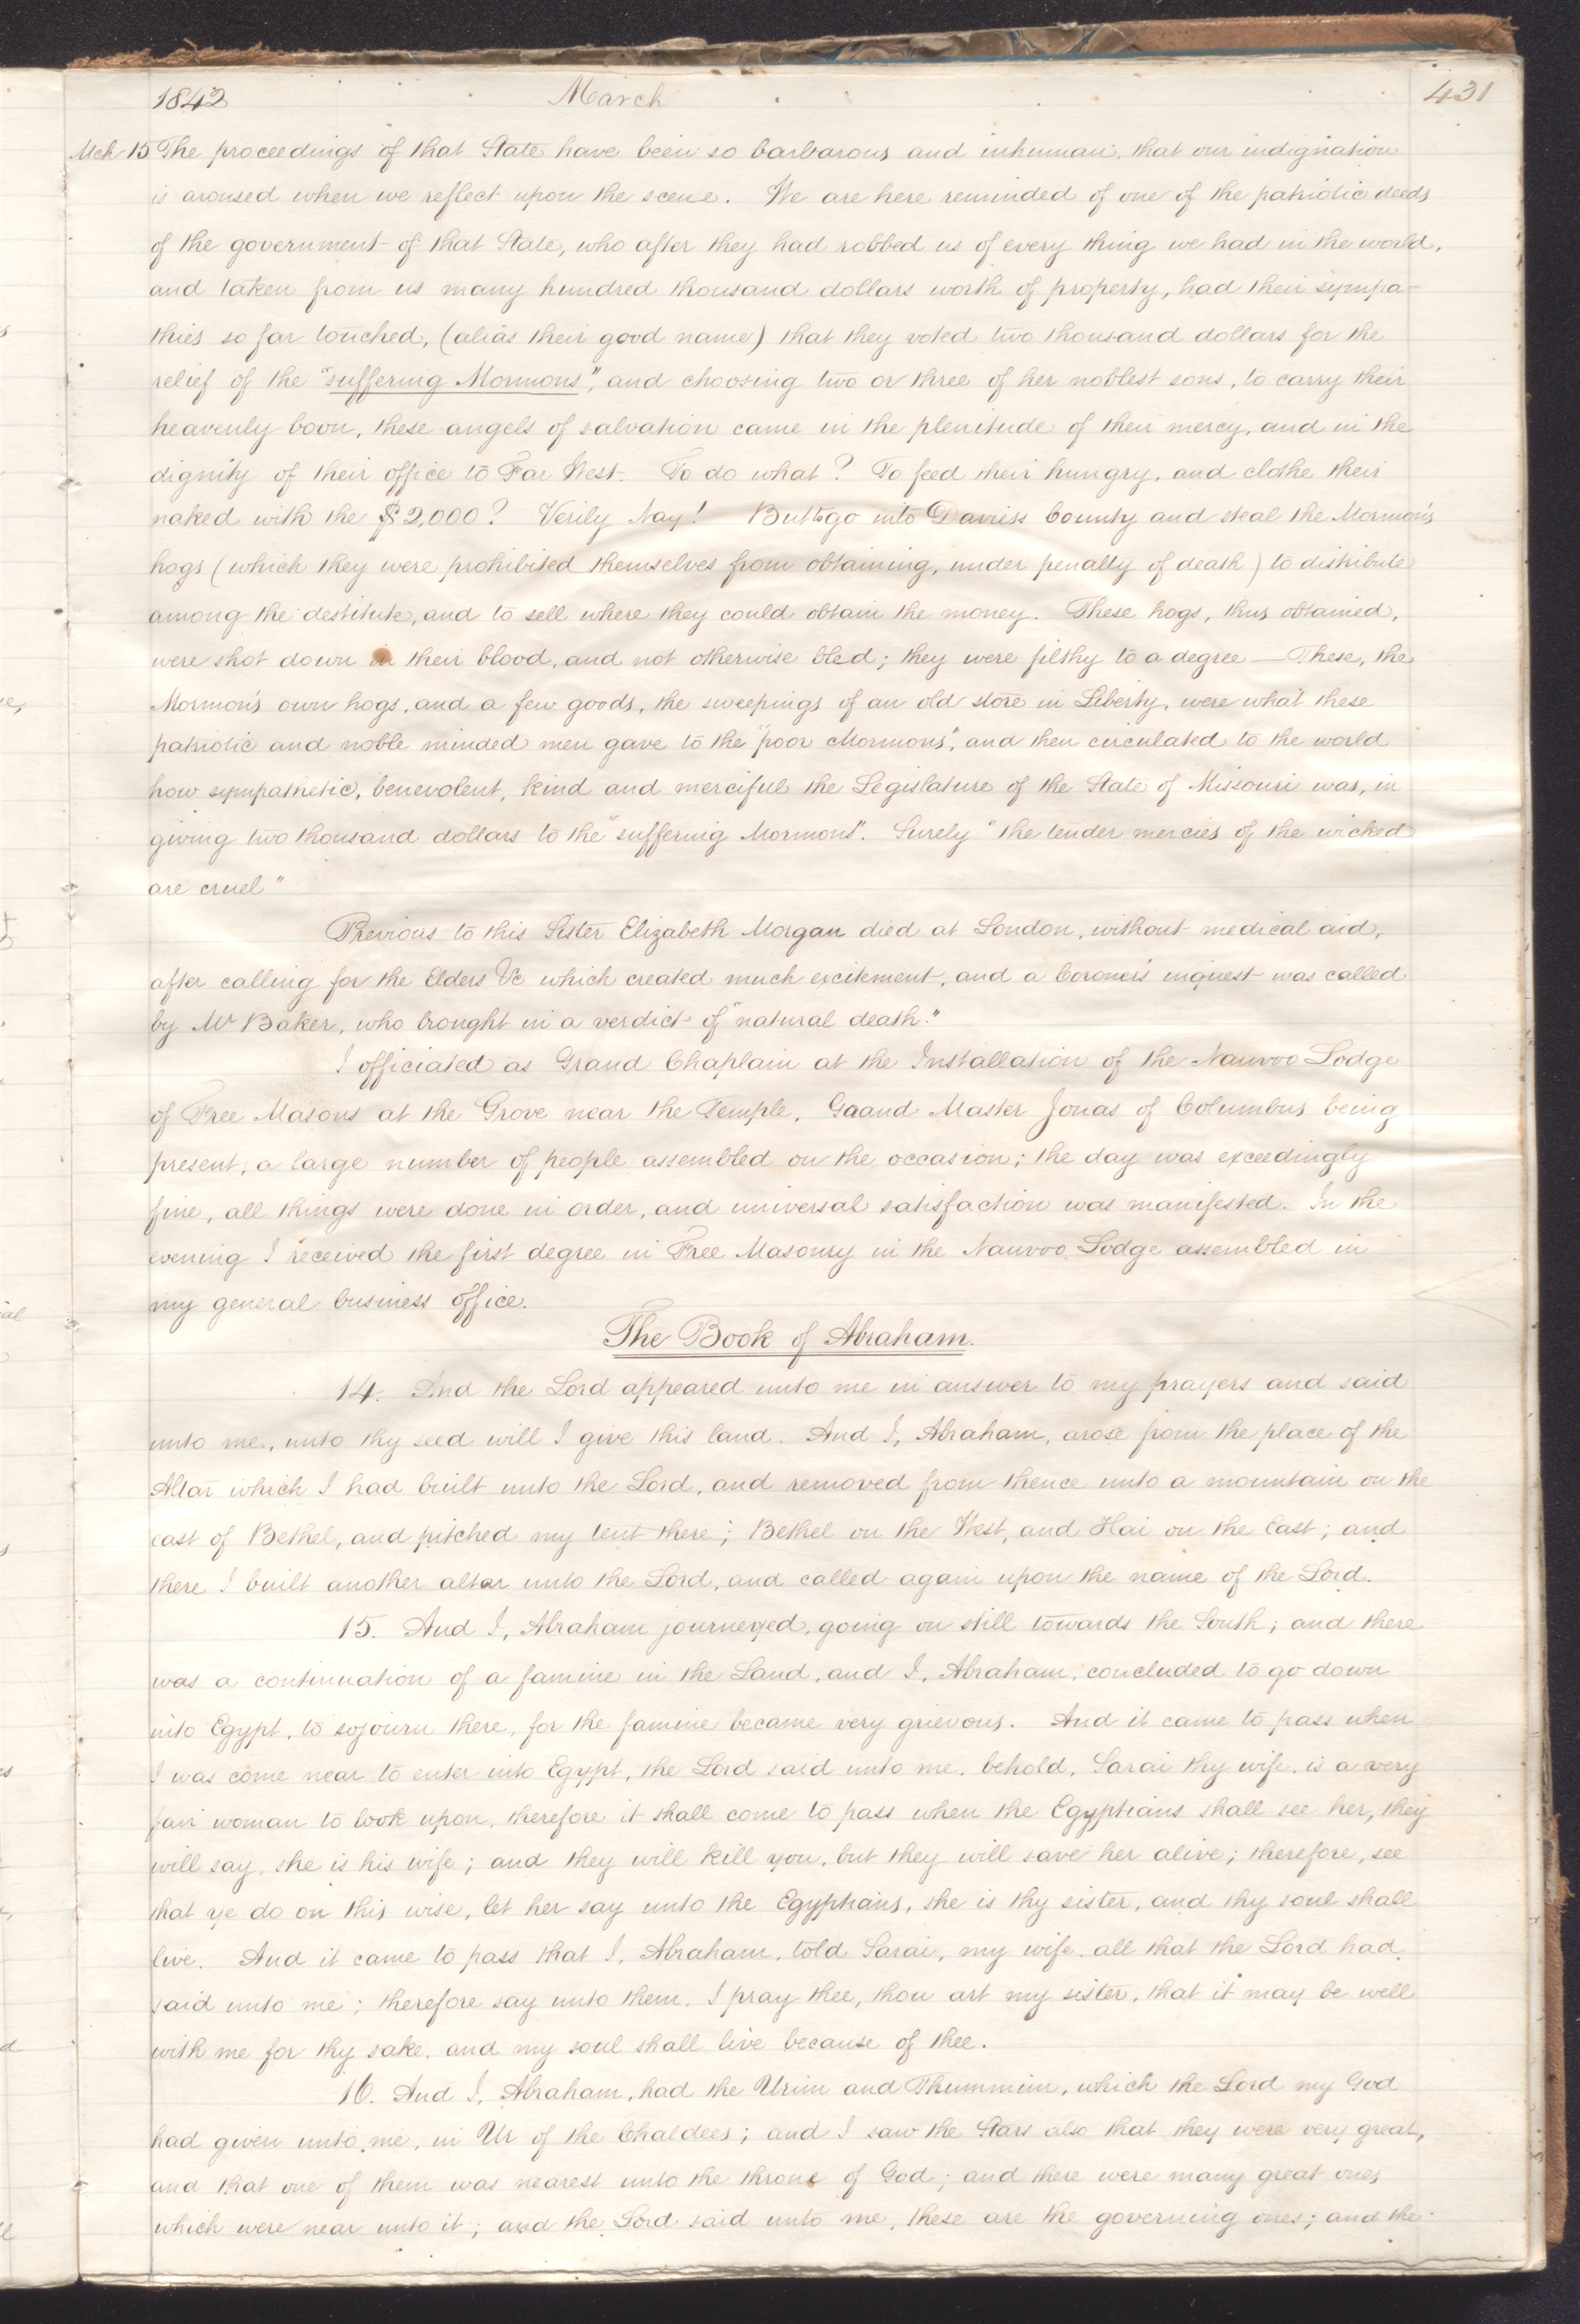 1842 March 431
Mch 15 The proceedings of that State have been so barbarous and inhuman, that our indignation
is aroused when we reflect upon the scene. We are here reminded of one of the patriotic deeds
of the government of that State, who after they had robbed us of every thing we had in the world,
and taken from us many hundred thousand dollars worth of property, had their sympa-
thies so far touched, (alias their good name) that they voted two thousand dollars for the
relief of the "suffering Mormons", and choosing two or three of her noblest sons, to carry their
heavenly boon, these angels of salvation came in the plenitude of their mercy, and in the
dignity of their office to Far West. To do what? To feed their hungry, and clothe their
naked with the $2,000? Verily Nay! But to go into Daviess County and steal the Mormon's
hogs (which they were prohibited themselves from obtaining, under penalty of death) to distribute
among the destitute, and to sell where they could obtain the money. These hogs, thus obtained,
were shot down in their blood, and not otherwise bled; they were filthy to a degree — These, the
Mormon's own hogs, and a few goods, the sweepings of an old store in Liberty, were what these
patriotic and noble minded men gave to the "poor Mormons", and then circulated to the world
how sympathetic, benevolent, kind and merciful the Legislature of the State of Missouri was, in
giving two thousand dollars to the "suffering Mormons". Surely "the tender mercies of the wicked
are cruel"
Previous to this Sister Elizabeth Morgan died at London, without medical aid,
after calling for the Elders &c which created much excitement, and a Coroner's inquest was called
by Mr Baker, who brought in a verdict of "natural death."
I officiated as Grand Chaplain at the Installation of the Nauvoo Lodge
of Free Masons at the Grove near the Temple, Gaand Master Jonas of Columbus being
present, a large number of people assembled on the occasion; the day was exceedingly
fine, all things were done in order, and universal satisfaction was manifested. In the
evening I received the first degree in Free Masonry in the Nauvoo Lodge assembled in
my general business office.
The Book of Abraham.
14. And the Lord appeared unto me in answer to my prayers and said
unto me, unto thy seed will I give this land. And I, Abraham, arose from the place of the
Altar which I had built unto the Lord, and removed from thence unto a mountain on the
east of Bethel, and pitched my tent there; Bethel on the West, and Hai on the East; and
there I built another altar unto the Lord, and called again upon the name of the Lord.
15. And I, Abraham journeyed, going on still towards the South; and there
was a continuation of a famine in the Land, and I, Abraham, concluded to go down
into Egypt, to sojourn there, for the famine became very grievous. And it came to pass when
I was come near to enter into Egypt, the Lord said unto me, behold, Sarai thy wife, is a very
fair woman to look upon, therefore it shall come to pass when the Egyptians shall see her, they
will say, she is his wife; and they will kill you, but they will save her alive; therefore, see
that ye do on this wise, let her say unto the Egyptians, she is thy sister, and thy soul shall
live. And it came to pass that I, Abraham, told Sarai, my wife, all that the Lord had
said unto me; therefore say unto them, I pray thee, thou art my sister, that it may be well
with me for thy sake, and my soul shall live because of thee.
16. And I, Abraham, had the Urim and Thummim, which the Lord my God
had given unto me, in Ur of the Chaldees; and I saw the Stars also that they were very great,
and that one of them was nearest unto the throne of God; and there were many great ones
which were near unto it; and the Lord said unto me, these are the governing ones; and the